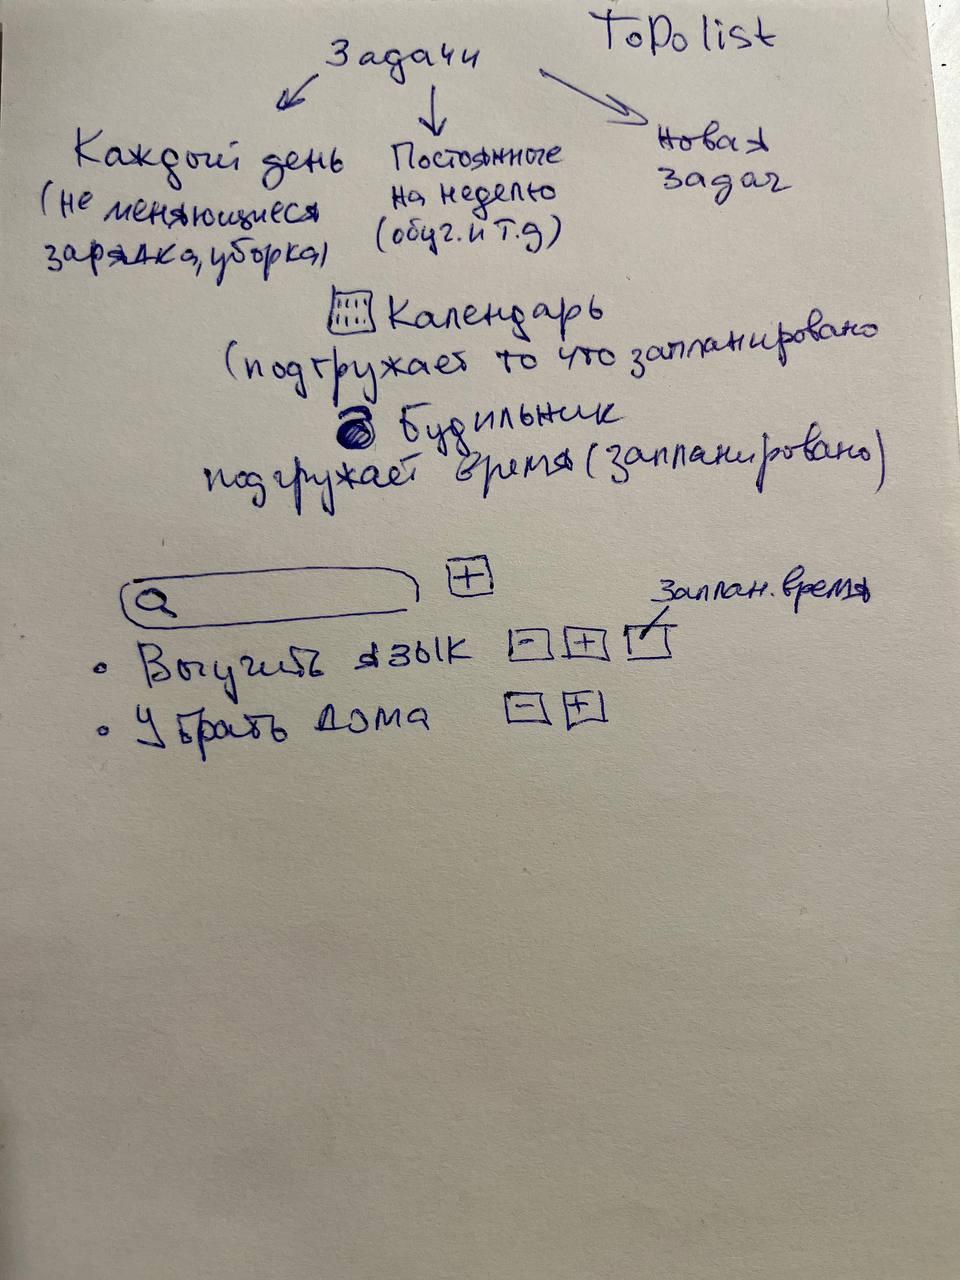 ToDo list
Задачи
Каждый день
(не меняющиеся
зарядка, уборка)
Постоянные
на неделю
(обуч. и т.д)
новая
задач
Календарь
(подгружает то что запланировано
Будильник
подгружает время (запланировано)
+
заплан. время
• Выучить язык - +
• Убрать дома - +